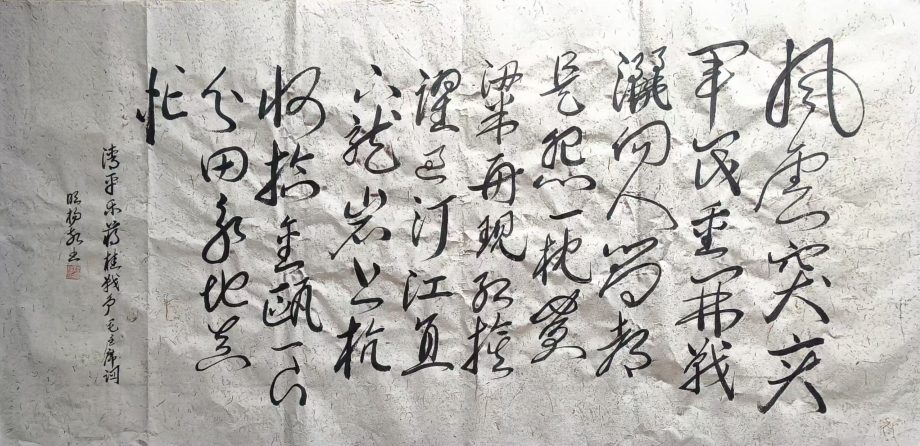 风云突变
军阀重开战
灑向人间都
是怨一枕黄
粱再现红旗
跃过汀江直
下龙岩上杭
收拾金瓯一片
分田分地真
忙
清平乐蒋桂战争毛主席词
书